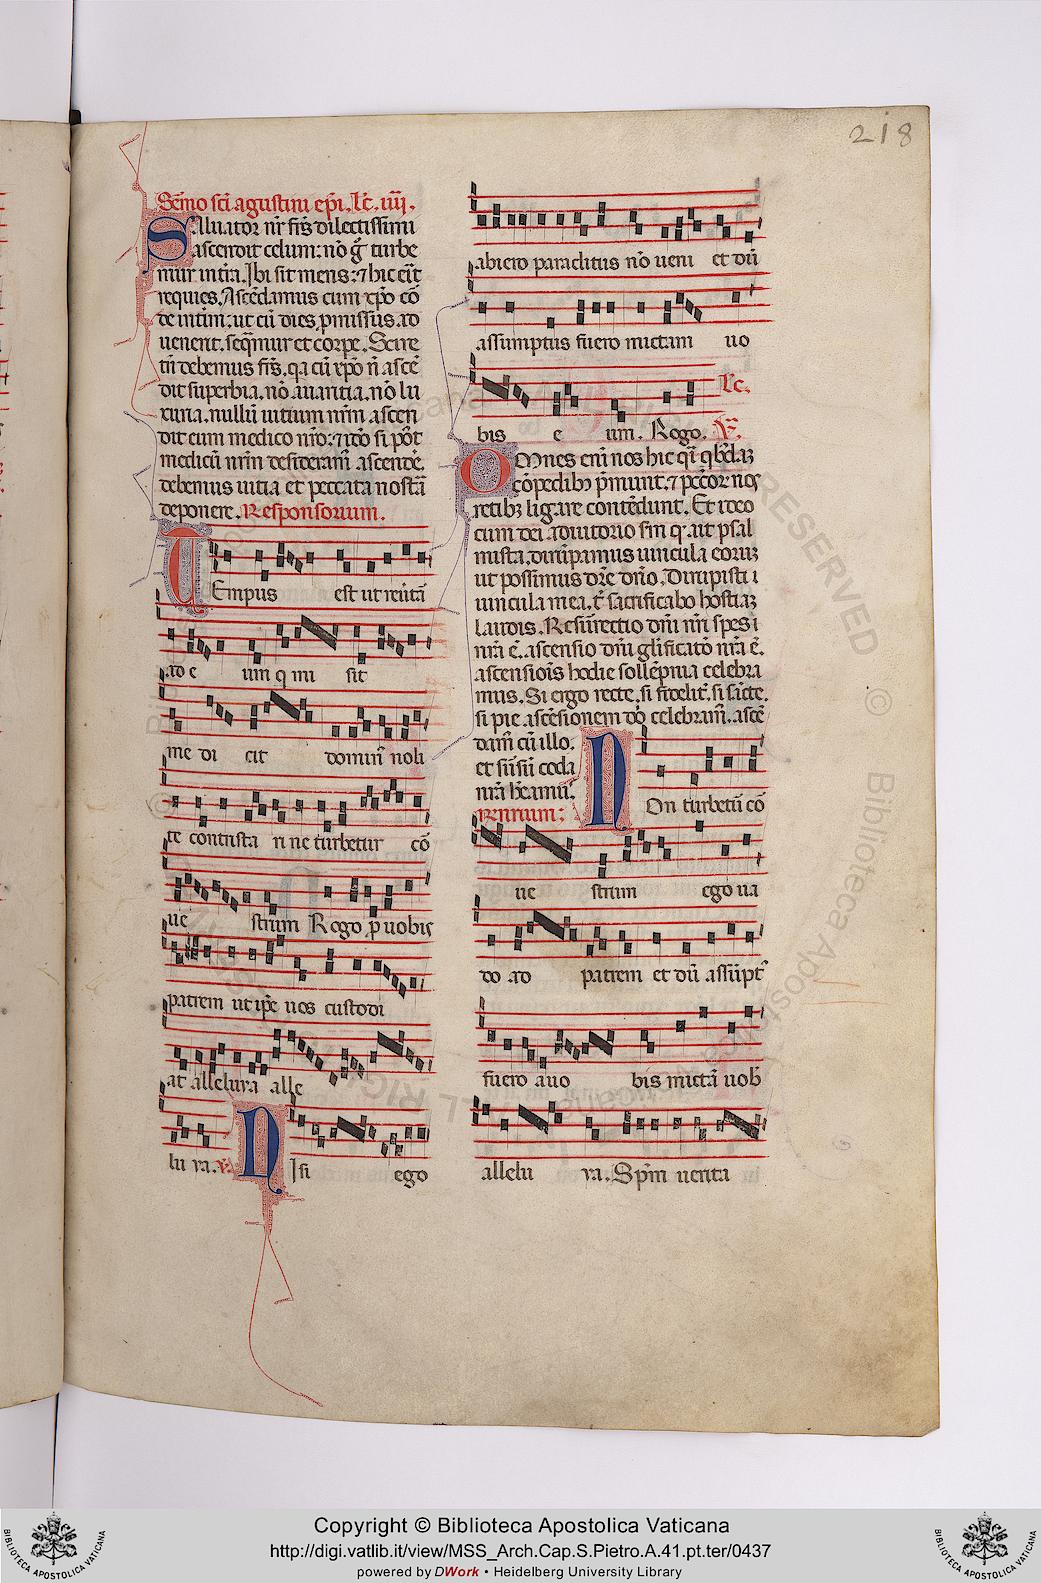 218
Sermo sci agustini epi. lc. iiij.
Saluator nr frs dilectissimi
ascendit celum: nō g̃ turbe
mur in tr̄a. Ibi sit mens: ⁊ hic erit
requies. Ascēdamus cum xp̄o cō
de intīm: ut cū dies p̄missus. ad
uenerit. seq̄mur et corpe. Scire
tn̄ debemus frs̄. qa cū xp̄o n̄ ascē
dit superbia. nō auaritia. nō lu
xuria. nullū uitium nr̄m ascen
dit cum medico nr̄o. ⁊ ido si pōt
medicū nr̄m desideram̄ ascende.
debemus uitia et peccata nostra
deponere. Responsorium.
Tempus est ut reuertā
ad e um q mi sit
me di cit domin̄ noli
te contrista ri ne turbetur cō
ue strum Rogo p uobis
patrem ut ip̄e uos custodi
at alleluya alle
lu ya. V. Nisi ego
abiero paraclitus nō ueni et dū
assumptus fuero mictam uo
bis e um. Rogo. V. Lc.
Omnes eni nos hic
cōpedib; p̄munt. ⁊ pctor nos
retib; ligare contēdunt. Et ideo
cum dei adiutorio sīn q. ait psal
mista. dirūpamus uincula eorum
ut possimus dr̄e dn̄o. Dirupisti
uincula mea. t̄ sacrificabo hostiam
laudis. Resurrectio dn̄i nr̄i spes
nr̄a ē. ascensio dn̄i glificatō nr̄a ē.
ascensiois hodie sollēpnia celebra
mus. Si ergo recte. si fidelit̄. si sc̄te.
si pie ascēsionem do celebram̄. ascē
dam̄ cū illo.
et sursū corda
nr̄a h̄eamu.
Non turbetū cō
ue strum ego ua
do ad patrem et dū assūpt
fuero a uo bis mictā uob
allelu ya. Spm uerita
Copyright © Biblioteca Apostolica Vaticana
http://digi.vatlib.it/view/MSS_Arch.Cap.S.Pietro.A.41.pt.ter/0437
powered by DWork • Heidelberg University Library
BIBLIOTECA APOSTOLICA VATICANA
BIBLIOTECA APOSTOLICA VATICANA